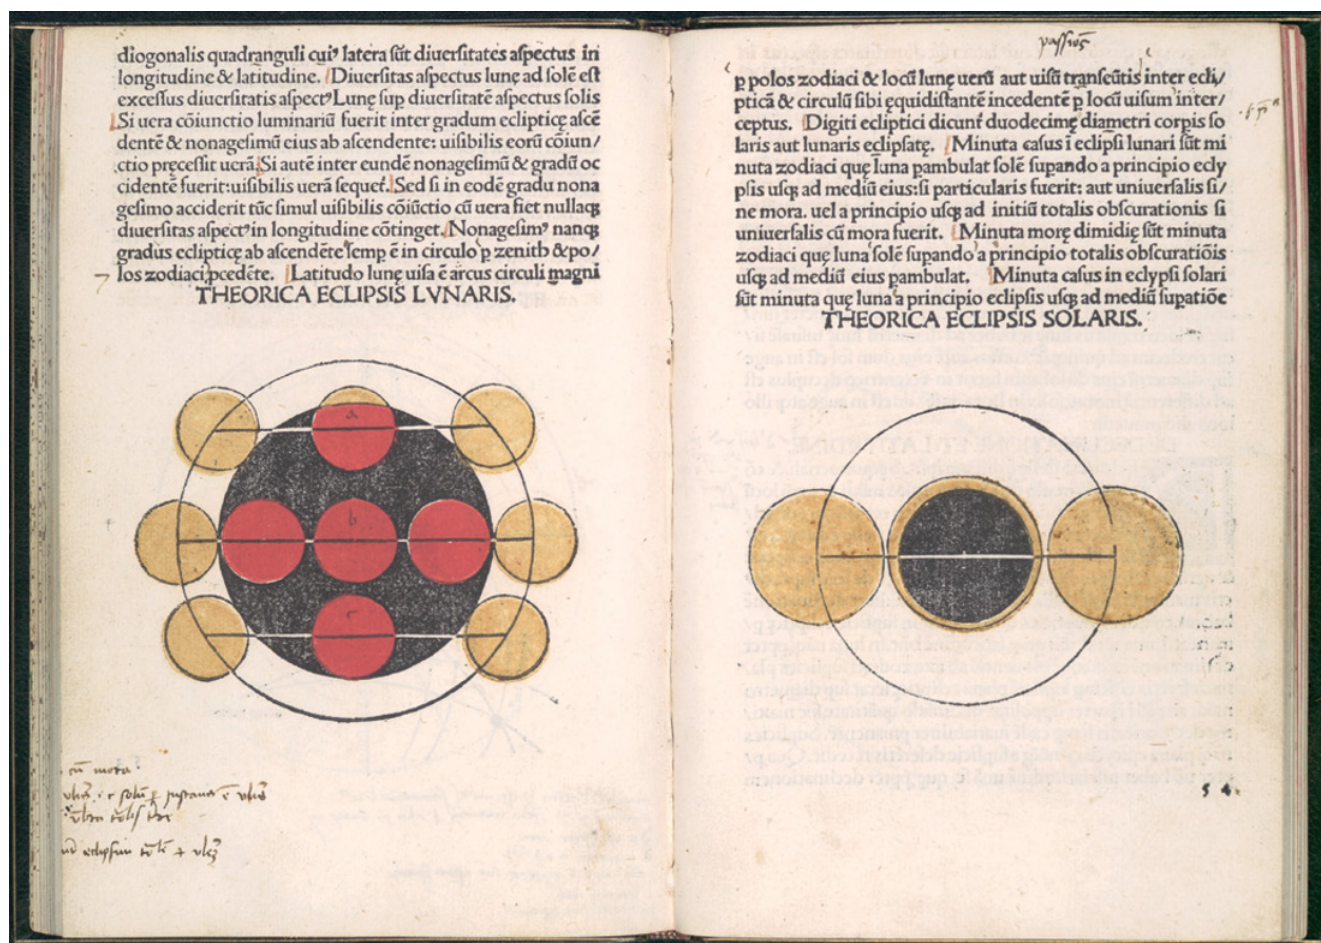 diogonalis quadranguli cuiꝰ latera sūt diuersitates aspectus in
longitudine & latitudine. Diuersitas aspectus lunę ad solē est
excessus diuersitatis aspectꝰ Lunę sup diuersitatē aspectus solis
Si uera cōiunctio luminariū fuerit inter gradum eclipticę ascē
dentē & nonagesimū eius ab ascendente: uisibilis eorū cōiun/
ctio pręcessit uerā. Si autē inter eundē nonagesimū & gradū oc
cidentē fuerit: uisibilis uerā sequeť. Sed si in eodē gradu nona
gesimo acciderit tūc simul uisibilis cōiūctio cū uera fiet nullaqꝫ
diuersitas aspectꝰ in longitudine cōtinget. Nonagesimꝰ nanqꝫ
gradus eclipticę ab ascendēte semp ē in circulo ꝑ zenith & po/
los zodiaci ꝓcedēte. Latitudo lunę uisa ē arcus circuli magni
THEORICA ECLIPSIS LVNARIS.
a
b
c
cū mora
passiōꝫ
ꝑ polos zodiaci & locū lunę uerū aut uisū trąnseūtis inter ecli/
pticā & circulū sibi ęquidistantē incedentē ꝑ locū uisum inter/
ceptus. Digiti ecliptici dicunť duodecimę diametri corpis so
laris aut lunaris eclipsatę. Minuta casus ī eclipsi lunari sūt mi
nuta zodiaci quę luna pambulat solē supando a principio ecly
psis usqꝫ ad mediū eius: si particularis fuerit: aut uniuersalis si/
ne mora. uel a principio usqꝫ ad initiū totalis obscurationis si
uniuersalis cū mora fuerit. Minuta morę dimidię sūt minuta
zodiaci quę luna solē supando a principio totalis obscuratiōis
usqꝫ ad mediū eius pambulat. Minuta casus in eclypsi solari
sūt minuta quę luna a principio eclipsis usqꝫ ad mediū supatiōe
THEORICA ECLIPSIS SOLARIS.
54